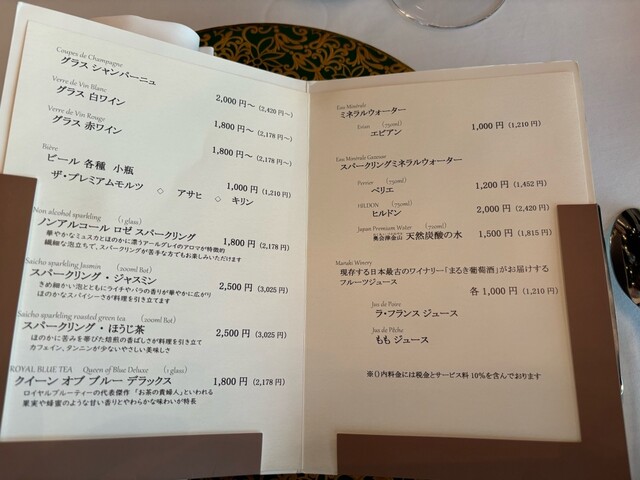 Coupes de Champagne
グラス シャンパーニュ 2,000 円～ (2,420 円～)
Verre de Vin Blanc
グラス 白ワイン 1,800 円～ (2,178 円～)
Verre de Vin Rouge
グラス 赤ワイン 1,800 円～ (2,178 円～)
Bière
ビール 各種 小瓶 1,000 円 (1,210 円)
ザ・プレミアムモルツ ◇ アサヒ ◇ キリン
Non alcohol sparkling (1 glass)
ノンアルコール ロゼ スパークリング 1,800 円 (2,178 円)
華やかなミュスカとほのかに漂うアールグレイのアロマが特徴的
繊細な泡立ちで、スパークリングが苦手な方でもお楽しみいただけます
Saicho sparkling Jasmin (200ml Bot)
スパークリング・ジャスミン 2,500 円 (3,025 円)
きめ細かい泡とともにライチやバラの香りが華やかに広がり
ほのかなスパイシーさが料理を引き立てます
Saicho sparkling roasted green tea (200ml Bot)
スパークリング・ほうじ茶 2,500 円 (3,025 円)
ほのかに苦みを帯びた焙煎の香ばしさが料理を引き立て
カフェイン、タンニンが少ないやさしい美味しさ
ROYAL BLUE TEA Queen of Blue Deluxe (1 glass)
クイーン オブ ブルー デラックス 1,800 円 (2,178 円)
ロイヤルブルーティーの代表傑作 「お茶の貴婦人」といわれる
果実や蜂蜜のような甘い香りとやわらかな味わいが特長
Eau Minérale
ミネラルウォーター
Evian (750ml)
エビアン 1,000 円 (1,210 円)
Eau Minérale Gazeuse
スパークリングミネラルウォーター
Perrier (750ml)
ペリエ 1,200 円 (1,452 円)
HILDON (750ml)
ヒルドン 2,000 円 (2,420 円)
Japan Premium Water (750ml)
奥会津金山 天然炭酸の水 1,500 円 (1,815 円)
Maruki Winery
現存する日本最古のワイナリー「まるき葡萄酒」がお届けする
フルーツジュース
各 1,000 円 (1,210 円)
Jus de Poire
ラ・フランス ジュース
Jus de Pêche
もも ジュース
※()内料金には税金とサービス料 10%を含んでおります